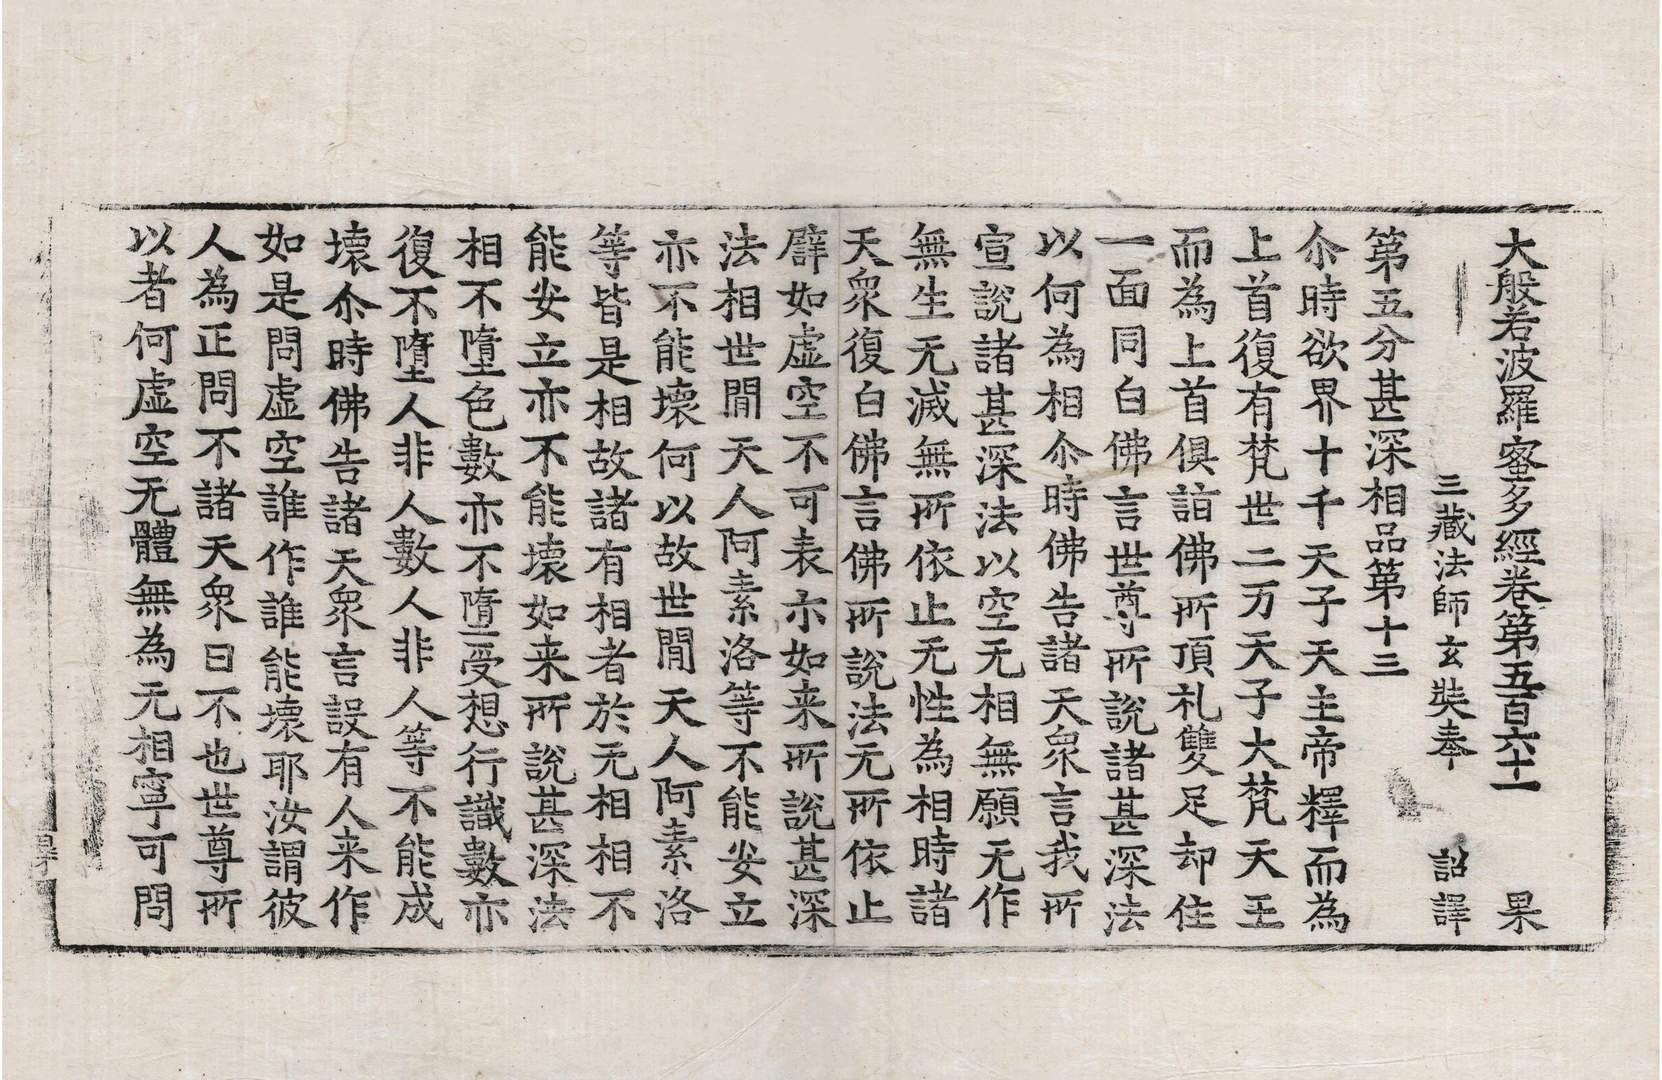 大般若波羅蜜多經卷第五百六十一 果
三藏法師玄奘奉 詔譯
第五分甚深相品第十三
尒時欲界十千天子天主帝釋而為
上首復有梵世二万天子大梵天王
而為上首俱詣佛所頂礼雙足却住
一面同白佛言世尊所說諸甚深法
以何為相尒時佛告諸天眾言我所
宣說諸甚深法以空无相無願无作
無生无滅無所依止无性為相時諸
天眾復白佛言佛所說法无所依止
譬如虛空不可表示如来所說甚深
法相世間天人阿素洛等不能安立
亦不能壞何以故世間天人阿素洛
等皆是相故諸有相者於无相相不
能安立亦不能壞如来所說甚深法
相不墮色數亦不墮受想行識數亦
復不墮人非人數人非人等不能成
壞尒時佛告諸天眾言設有人来作
如是問虛空誰作誰能壞耶汝謂彼
人為正問不諸天眾曰不也世尊所
以者何虛空无體無為无相寧可問